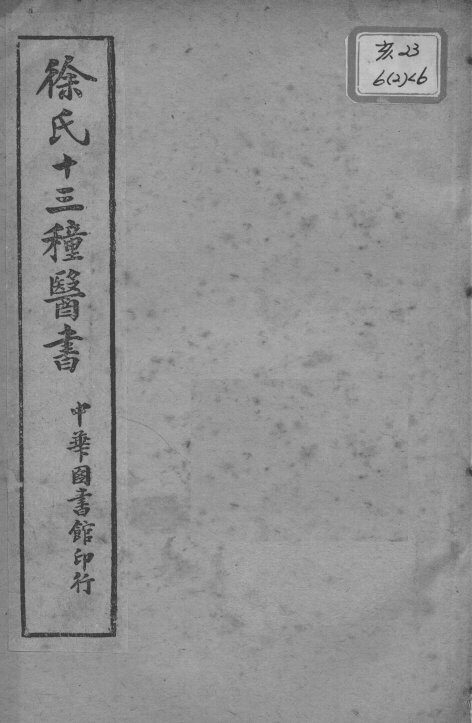 徐氏十三種醫書
中華図書館印行
亥23
6(2)<6